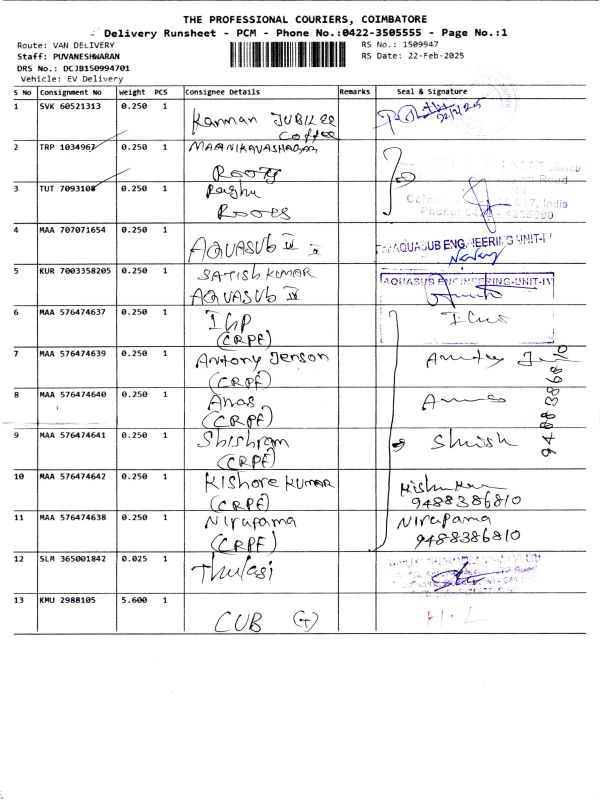 THE PROFESSIONAL COURIERS, COIMBATORE
Delivery Runsheet - PCM - Phone No.:0422-3505555 - Page No.:1
Route: VAN DELIVERY
RS No.: 1509947
Staff: PUVANESHWARAN
RS Date: 22-Feb-2025
DRS No.: DCJB150994701
Vehicle: EV Delivery
S No Consignment No Weight PCS Consignee Details Remarks Seal & Signature
1 SVK 60521313 0.250 1 Kannan JUBILEE
Coffee 22/2/25
2 TRP 1034967 0.250 1 MAANIKAVASHAGAM
ROOTS
3 TUT 7093108 0.250 1 Raghu
ROOTS
India
4 MAA 707071654 0.250 1 AQUASUB IV
For AQUASUB ENGINEERING UNIT-IV
5 KUR 7003358205 0.250 1 SATISH KUMAR
AQUASUB IV
AQUASUB ENGINEERING-UNIT-IV
6 MAA 576474637 0.250 1 IGP
(CRPF)
7 MAA 576474639 0.250 1 Antony Jenson
(CRPF)
8 MAA 576474640 0.250 1 Anas
(CRPF)
9488386810
9 MAA 576474641 0.250 1 Shishram Shish
(CRPF)
10 MAA 576474642 0.250 1 Kishore KUMAR
(CRPF) 9488386810
11 MAA 576474638 0.250 1 Nirupama Nirupama
(CRPF) 9488386810
12 SLM 365001842 0.025 1 Thulasi
13 KMU 2988105 5.600 1 CUB H.L